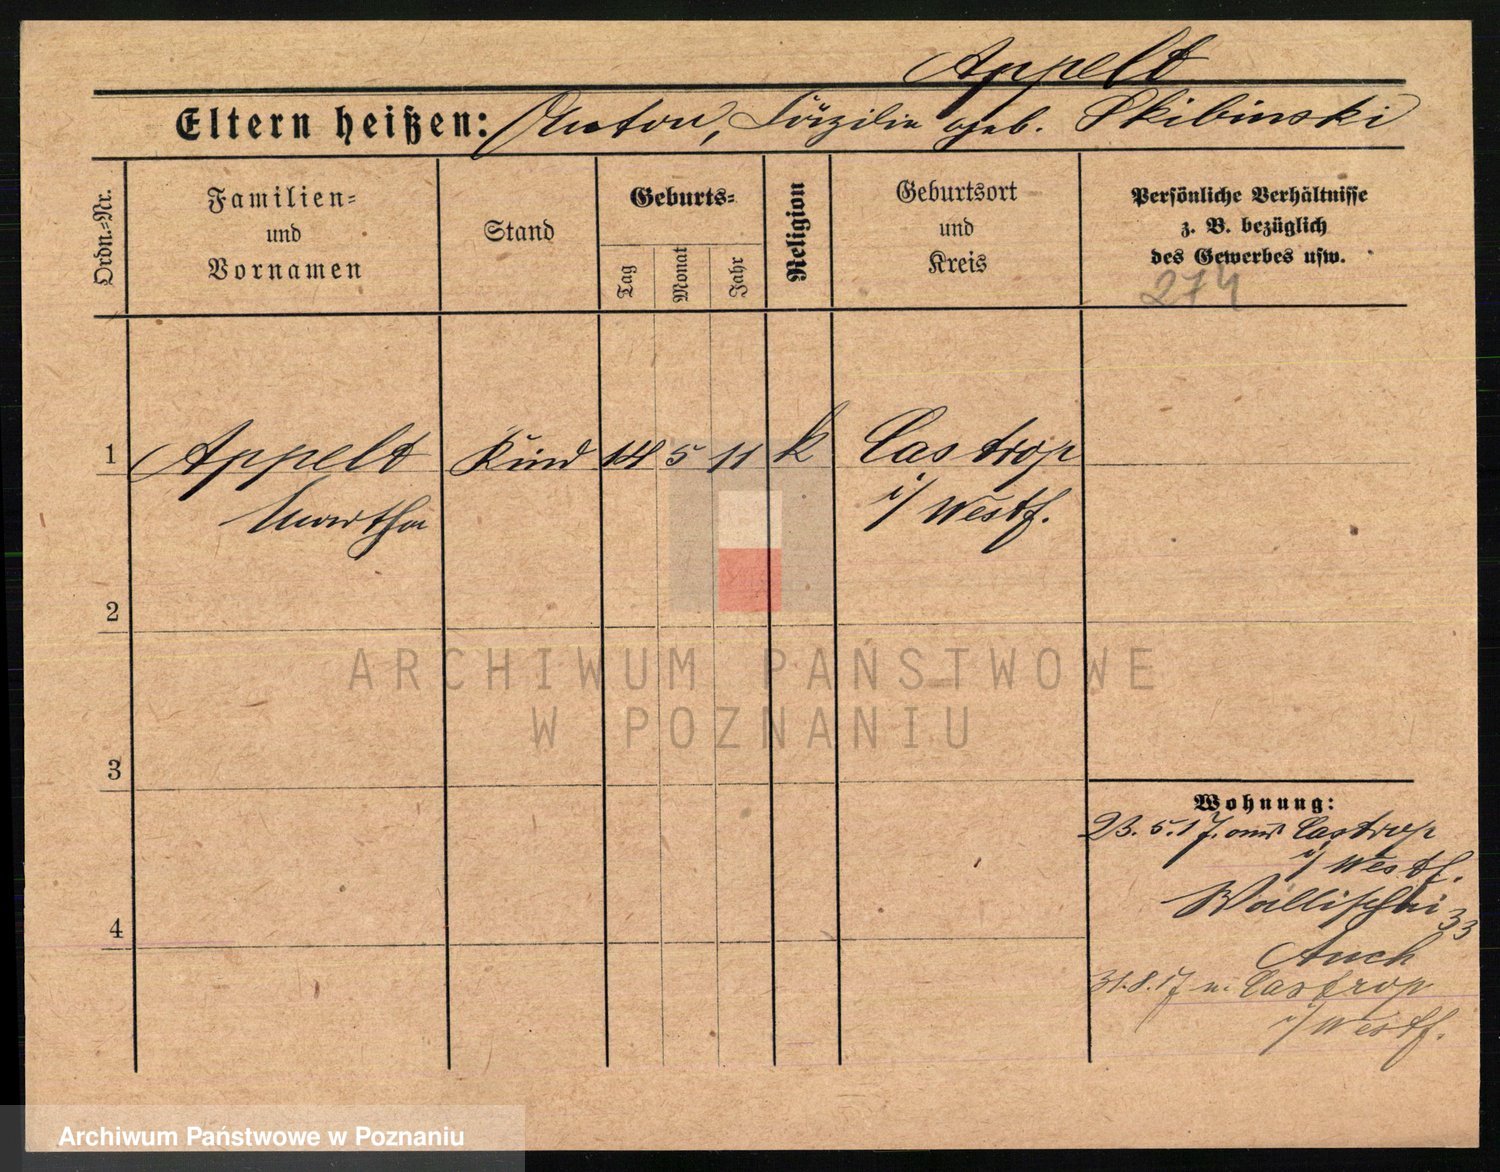 Appelt
Eltern heißen: Anton, Cäzilia geb. Skibinski
Ordn.-Nr.
Familien-
und
Vornamen
Stand
Geburts-
Tag
Monat
Jahr
Religion
Geburtsort
und
Kreis
Persönliche Verhältnisse
z. B. bezüglich
des Gewerbes usw.
274
1 Appelt Kind 14 5 11 k Castrop
Martha i/ Westf.
2
3
4
Wohnung:
23.5.17. aus Castrop
i/ Westf.
Wallischei 33
Auch
31.8.17 n. Castrop
i/ Westf.
ARCHIWUM PAŃSTWOWE
W POZNANIU
Archiwum Państwowe w Poznaniu